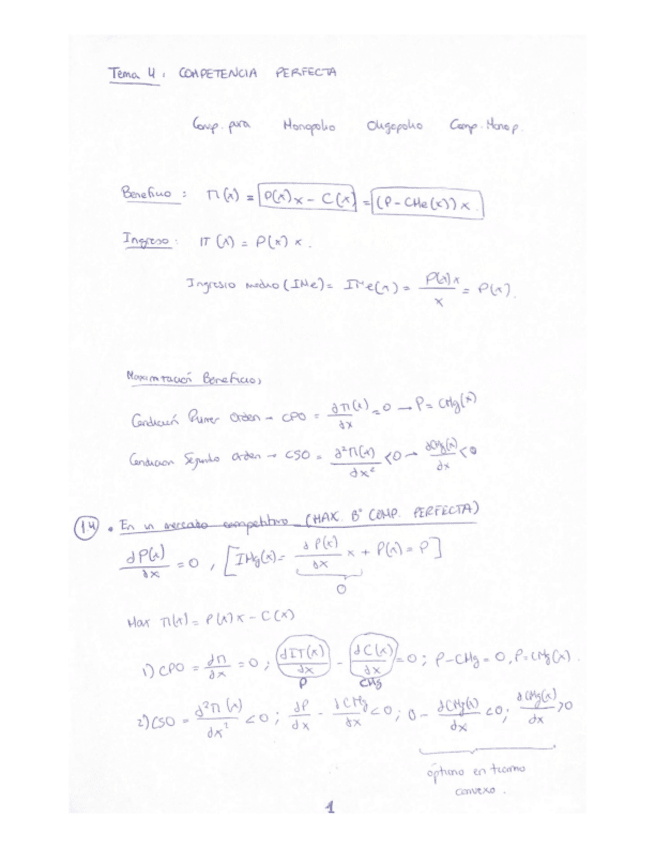 Tema 4: COMPETENCIA PERFECTA
Comp. pura Monopolio Oligopolio Comp. Monop.
Beneficio: Π(x) = P(x)x - C(x) = (P - CMe(x))x.
Ingreso: IT(x) = P(x) x.
Ingreso medio (IMe) = IMe(x) = P(x)x / x = P(x).
Maximización Beneficios,
Condición Primer Orden → CPO = ∂Π(x)/∂x = 0 → P = CMg(x)
Condicion Segundo Orden → CSO = ∂²Π(x)/∂x² < 0 → ∂CMg(x)/∂x < 0
14 • En un mercado competitivo (MAX. Bº COMP. PERFECTA)
∂P(x)/∂x = 0, [IMg(x) = ∂P(x)/∂x x + P(x) = P]
0
Max Π(x) = P(x)x - C(x)
1) CPO = ∂Π/∂x = 0; ∂IT(x)/∂x - ∂C(x)/∂x = 0; P - CMg = 0, P = CMg(x).
P CMg
2) CSO = ∂²Π(x)/∂x² < 0; ∂P/∂x - ∂CMg/∂x < 0; 0 - ∂CMg(x)/∂x < 0; ∂CMg(x)/∂x > 0
óptimo en tramo
convexo.
1